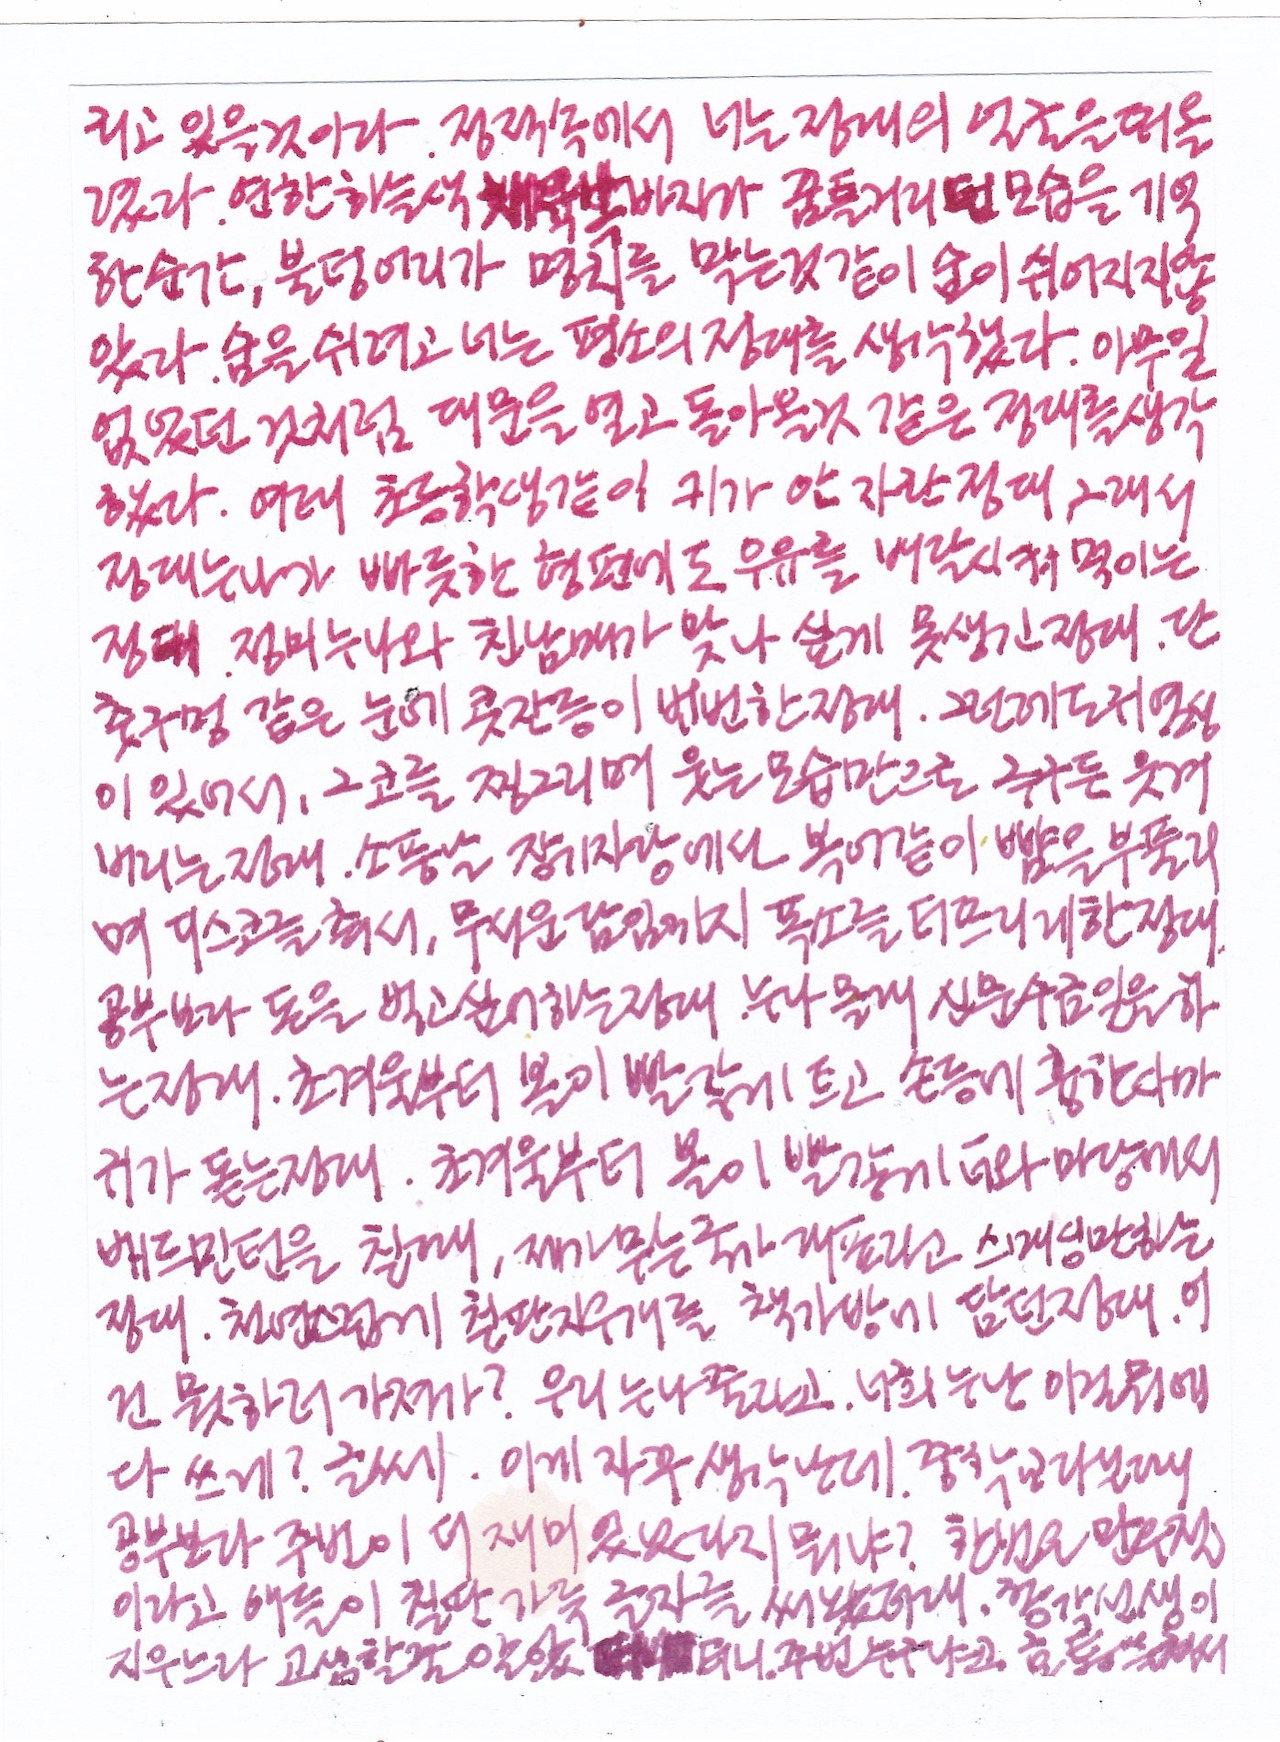 키고 있을 것이다. 정적 속에서 너는 정대의 얼굴을 떠올
렸다. 연한 하늘색 바지가 꿈틀거리던 모습을 기억
한 순간, 불덩어리가 명치를 막는 것 같이 숨이 쉬어지지 않
았다. 숨을 쉬려고 너는 평소의 정대를 생각했다. 아무 일
없었던 것처럼 대문을 열고 돌아올 것 같은 정대를 생각
했다. 여태 초등학생같이 키가 안 자란 정대 그래서
정대 누나가 빠듯한 형편에도 우유를 배달시켜 먹이는
정대. 정미 누나와 친남매가 맞나 싶게 못생긴 정대. 단
춧구멍 같은 눈에 콧잔등이 번번한 정대. 그런데도 귀염성
이 있어서, 그 코를 찡그리며 웃는 모습만으로 누구든 웃겨
버리는 정대. 소풍날 장기자랑에서 복어같이 뺨을 부풀리
며 디스코를 춰서, 무서운 담임까지 폭소를 터뜨리게 한 정대.
공부보다 돈을 벌고 싶어하는 정대. 누나 몰래 신문 수금 일을 하
는 정대. 초겨울부터 볼이 빨갛게 트고 손등에 흉한 사마
귀가 돋는 정대. 초겨울부터 볼이 빨갛게 너와 마당에서
배드민턴을 칠 때, 제가 무슨 국가대표라고 스매싱만 하는
정대. 천연스럽게 칠판지우개를 책가방에 담던 정대. 이
건 뭣하러 가져가? 우리 누나 줄라고. 너희 누난 이걸 뭐에
다 쓰게? 글쎄. 이게 자꾸 생각난대. 중학교 다닐 때
공부보다 주번이 더 재미있었다지 뭐냐? 한번은 만우절
이라고 애들이 칠판 가득 글자를 써놨더래. 꽝각선생이
지우느라 고생할 줄 알았 더니. 주번 누구냐고 호통을 쳐서